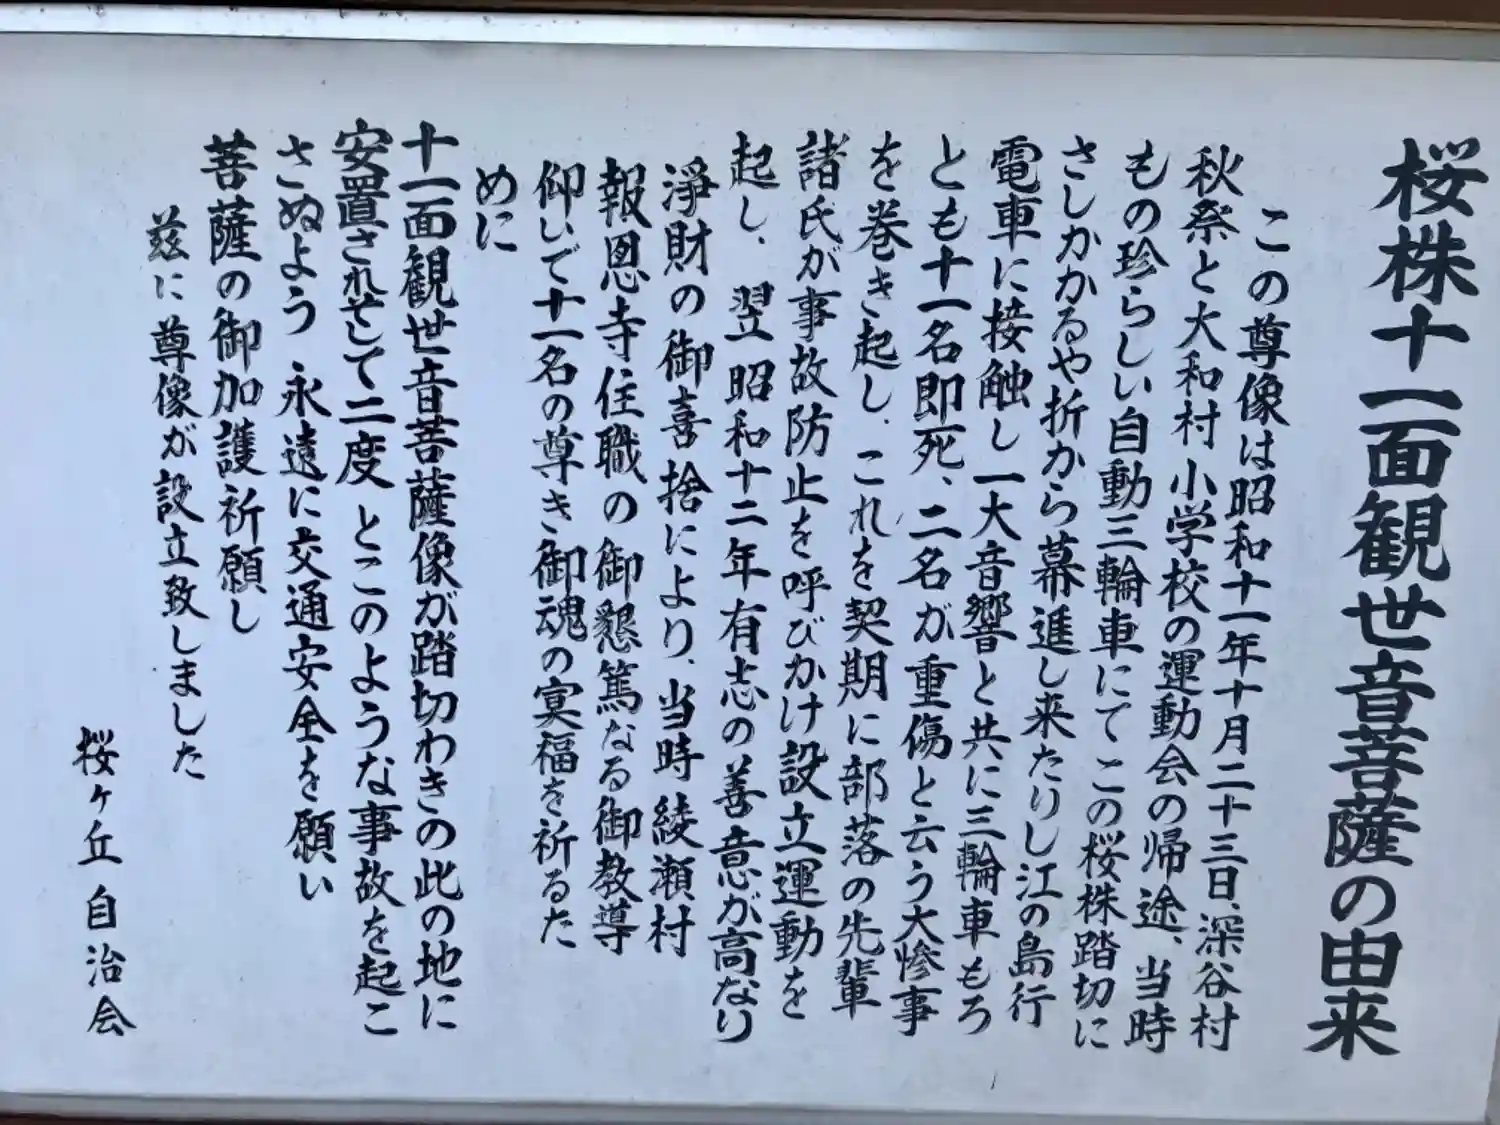 桜株十一面観世音菩薩の由来
この尊像は昭和十一年十月二十三日、深谷村
秋祭と大和村小学校の運動会の帰途、当時
もの珍らしい自動三輪車にてこの桜株踏切に
さしかかるや折から驀進し来たりし江の島行
電車に接触し一大音響と共に三輪車もろ
とも十一名即死、二名が重傷と云う大惨事
を巻き起し、これを契期に部落の先輩
諸氏が事故防止を呼びかけ設立運動を
起し、翌昭和十二年有志の善意が高なり
淨財の御喜捨により、当時綾瀬村
報恩寺住職の御懇篤なる御教導
仰いで十一名の尊き御魂の冥福を祈るた
めに
十一面観世音菩薩像が踏切わきの此の地に
安置されそして二度とこのような事故を起こ
さぬよう永遠に交通安全を願い
菩薩の御加護祈願し
茲に尊像が設立致しました
桜ヶ丘自治会